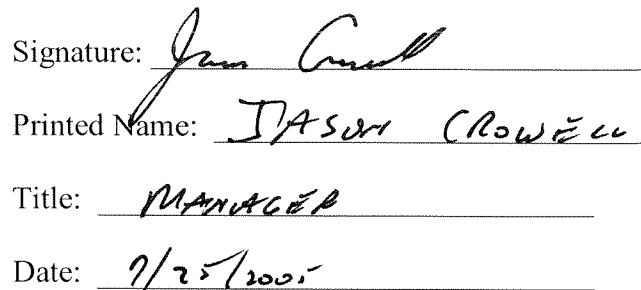 Signature: Jason Crowell
Printed Name: JASON CROWELL
Title: MANAGER
Date: 7/25/2005